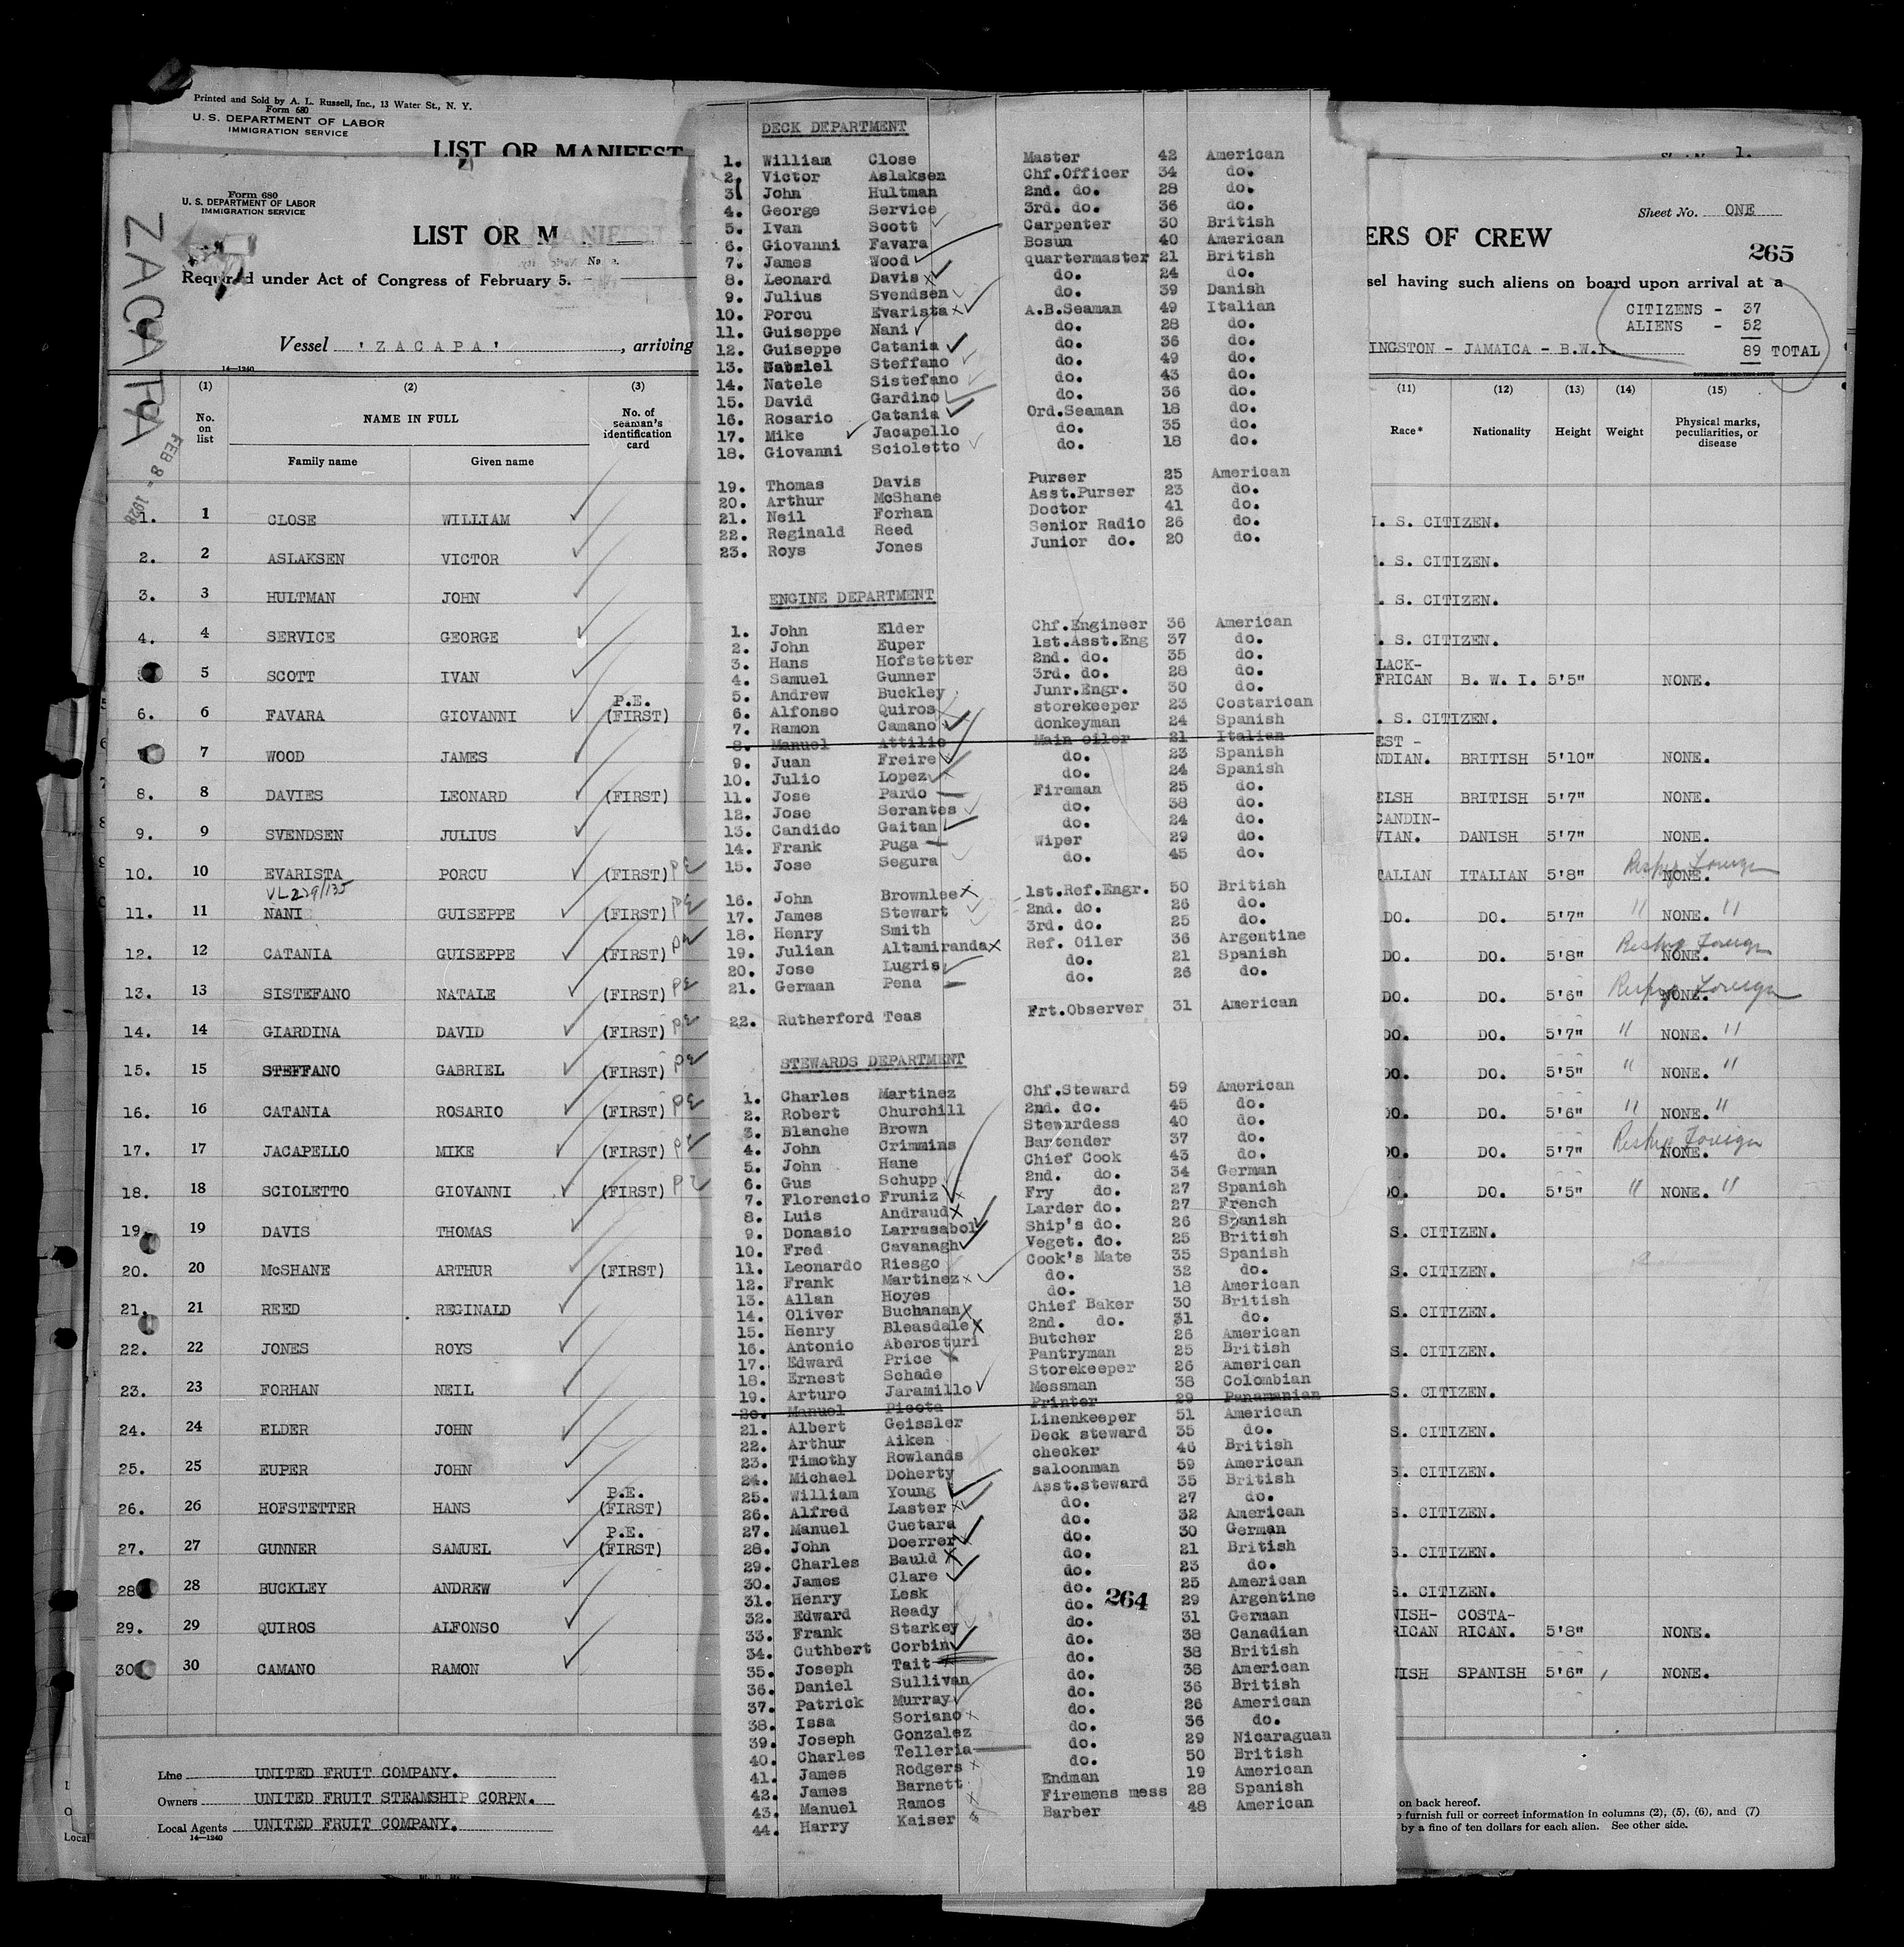 Printed and Sold by A. L. Russell, Inc., 13 Water St., N. Y.
Form 680
U. S. DEPARTMENT OF LABOR
IMMIGRATION SERVICE
LIST OR MANIFEST
1.
Form 680
U. S. DEPARTMENT OF LABOR
IMMIGRATION SERVICE
ZACAPA
FEB 8 - 1928
LIST OR M
Required under Act of Congress of February 5.
Vessel 'ZACAPA' , arriving
14—1240
(1) (2) (3)
No. on list
NAME IN FULL
No. of seaman's identification card
Family name Given name
1. 1 CLOSE WILLIAM
2. 2 ASLAKSEN VICTOR
3. 3 HULTMAN JOHN
4. 4 SERVICE GEORGE
5 SCOTT IVAN
6. 6 FAVARA GIOVANNI P.E. (FIRST)
7 WOOD JAMES
8. 8 DAVIES LEONARD (FIRST)
9. 9 SVENDSEN JULIUS
10. 10 EVARISTA PORCU (FIRST) PE
VL229/135
11. 11 NANI GUISEPPE (FIRST) PE
12. 12 CATANIA GUISEPPE (FIRST) PE
13. 13 SISTEFANO NATALE (FIRST) PE
14. 14 GIARDINA DAVID (FIRST) PE
15. 15 STEFFANO GABRIEL (FIRST) PE
16. 16 CATANIA ROSARIO (FIRST) PE
17. 17 JACAPELLO MIKE (FIRST) PE
18. 18 SCIOLETTO GIOVANNI (FIRST) PE
19. 19 DAVIS THOMAS
20. 20 McSHANE ARTHUR (FIRST)
21. 21 REED REGINALD
22. 22 JONES ROYS
23. 23 FORHAN NEIL
24. 24 ELDER JOHN
25. 25 EUPER JOHN
26. 26 HOFSTETTER HANS P.E. (FIRST)
27. 27 GUNNER SAMUEL P.E. (FIRST)
28 28 BUCKLEY ANDREW
29. 29 QUIROS ALFONSO
30 30 CAMANO RAMON
Line UNITED FRUIT COMPANY.
Owners UNITED FRUIT STEAMSHIP CORPN.
Local Agents UNITED FRUIT COMPANY.
14—1240
Local
DECK DEPARTMENT
1. William Close Master 42 American
2. Victor Aslaksen Chf.Officer 34 do.
3. John Hultman 2nd. do. 28 do.
4. George Service 3rd. do. 36 do.
5. Ivan Scott Carpenter 30 British
6. Giovanni Favara Bosun 40 American
7. James Wood quartermaster 21 British
8. Leonard Davis do. 24 do.
9. Julius Svendsen do. 39 Danish
10. Porcu Evarista A.B.Seaman 49 Italian
11. Guiseppe Nani do. 28 do.
12. Guiseppe Catania do. 36 do.
13. Steffano do. 49 do.
14. Natele Sistefano do. 43 do.
15. David Gardino do. 36 do.
16. Rosario Catania Ord.Seaman 18 do.
17. Mike Jacapello do. 35 do.
18. Giovanni Scioletto do. 18 do.
19. Thomas Davis Purser 25 American
20. Arthur McShane Asst.Purser 23 do.
21. Neil Forhan Doctor 41 do.
22. Reginald Reed Senior Radio 26 do.
23. Roys Jones Junior do. 20 do.
ENGINE DEPARTMENT
1. John Elder Chf.Engineer 36 American
2. John Euper 1st.Asst.Eng 37 do.
3. Hans Hofstetter 2nd. do. 35 do.
4. Samuel Gunner 3rd. do. 28 do.
5. Andrew Buckley Junr.Engr. 30 do.
6. Alfonso Quiros storekeeper 23 Costarican
7. Ramon Camano donkeyman 24 Spanish
8. Manuel Attilio Main oiler 21 Italian
9. Juan Freire do. 23 Spanish
10. Julio Lopez do. 24 Spanish
11. Jose Pardo Fireman 25 do.
12. Jose Serantes do. 38 do.
13. Candido Gaitan do. 24 do.
14. Frank Puga Wiper 29 do.
15. Jose Segura do. 45 do.
16. John Brownlee 1st.Ref.Engr. 50 British
17. James Stewart 2nd. do. 26 do.
18. Henry Smith 3rd. do. 25 do.
19. Julian Altamiranda Ref. Oiler 36 Argentine
20. Jose Lugris do. 21 Spanish
21. German Pena do. 26 do.
22. Rutherford Teas Frt.Observer 31 American
STEWARDS DEPARTMENT
1. Charles Martinez Chf.Steward 59 American
2. Robert Churchill 2nd. do. 45 do.
3. Blanche Brown Stewardess 40 do.
4. John Crimmins Bartender 37 do.
5. John Hane Chief Cook 43 do.
6. Gus Schupp 2nd. do. 34 German
7. Florencio Fruniz Fry do. 27 Spanish
8. Luis Andraud Larder do. 27 French
9. Donasio Larrasabol Ship's do. 26 Spanish
10. Fred Cavanagh Veget. do. 25 British
11. Leonardo Riesgo Cook's Mate 35 Spanish
12. Frank Martinez do. 32 do.
13. Allan Hoyes do. 18 American
14. Oliver Buchanan Chief Baker 30 British
15. Henry Bleasdale 2nd. do. 31 do.
16. Antonio Aberosturi Butcher 26 American
17. Edward Price Pantryman 25 British
18. Ernest Schade Storekeeper 26 American
19. Arturo Jaramillo Messman 38 Colombian
20. Manuel Picota Printer 29 Panamanian
21. Albert Geissler Linenkeeper 51 American
22. Arthur Aiken Deck steward 35 do.
23. Timothy Rowlands checker 46 British
24. Michael Doherty saloonman 59 American
25. William Young Asst.steward 35 British
26. Alfred Laster do. 27 do.
27. Manuel Cuetara do. 32 American
28. John Doerrer do. 30 German
29. Charles Bauld do. 21 British
30. James Clare do. 23 do.
31. Henry Lesk do. 25 American
32. Edward Ready do. 29 Argentine
33. Frank Starkey do. 31 German
34. Cuthbert Corbin do. 38 Canadian
35. Joseph Tait do. 38 British
36. Daniel Sullivan do. 38 American
37. Patrick Murray do. 36 British
38. Issa Soriano do. 26 American
39. Joseph Gonzalez do. 36 do.
40. Charles Telleria do. 29 Nicaraguan
41. James Rodgers do. 50 British
42. James Barnett Endman 19 American
43. Manuel Ramos Firemens mess 28 Spanish
44. Harry Kaiser Barber 48 American
264
Sheet No. ONE
ERS OF CREW
265
sel having such aliens on board upon arrival at a
CITIZENS - 37
ALIENS - 52
89 TOTAL
INGSTON - JAMAICA - B.W.I.
(11) (12) (13) (14) (15)
Race* Nationality Height Weight Physical marks, peculiarities, or disease
. S. CITIZEN.
. S. CITIZEN.
. S. CITIZEN.
. S. CITIZEN.
LACK-
FRICAN B. W. I. 5'5" NONE.
. S. CITIZEN.
EST -
NDIAN. BRITISH 5'10" NONE.
ELSH BRITISH 5'7" NONE.
CANDIN-
VIAN. DANISH 5'7" NONE.
TALIAN ITALIAN 5'8" NONE. Reshp Foreign
DO. DO. 5'7" " NONE. "
DO. DO. 5'8" NONE. Reshp Foreign
DO. DO. 5'6" NONE. Reshp Foreign
DO. DO. 5'7" " NONE. "
DO. DO. 5'5" " NONE. "
DO. DO. 5'6" " NONE. "
DO. DO. 5'7" NONE. Reshp Foreign
DO. DO. 5'5" " NONE. "
S. CITIZEN.
S. CITIZEN.
S. CITIZEN.
S. CITIZEN.
S. CITIZEN.
S. CITIZEN.
S. CITIZEN.
S. CITIZEN.
S. CITIZEN.
S. CITIZEN.
NISH- COSTA-
RICAN RICAN. 5'8" NONE.
NISH SPANISH 5'6" NONE.
on back hereof.
furnish full or correct information in columns (2), (5), (6), and (7)
by a fine of ten dollars for each alien. See other side.